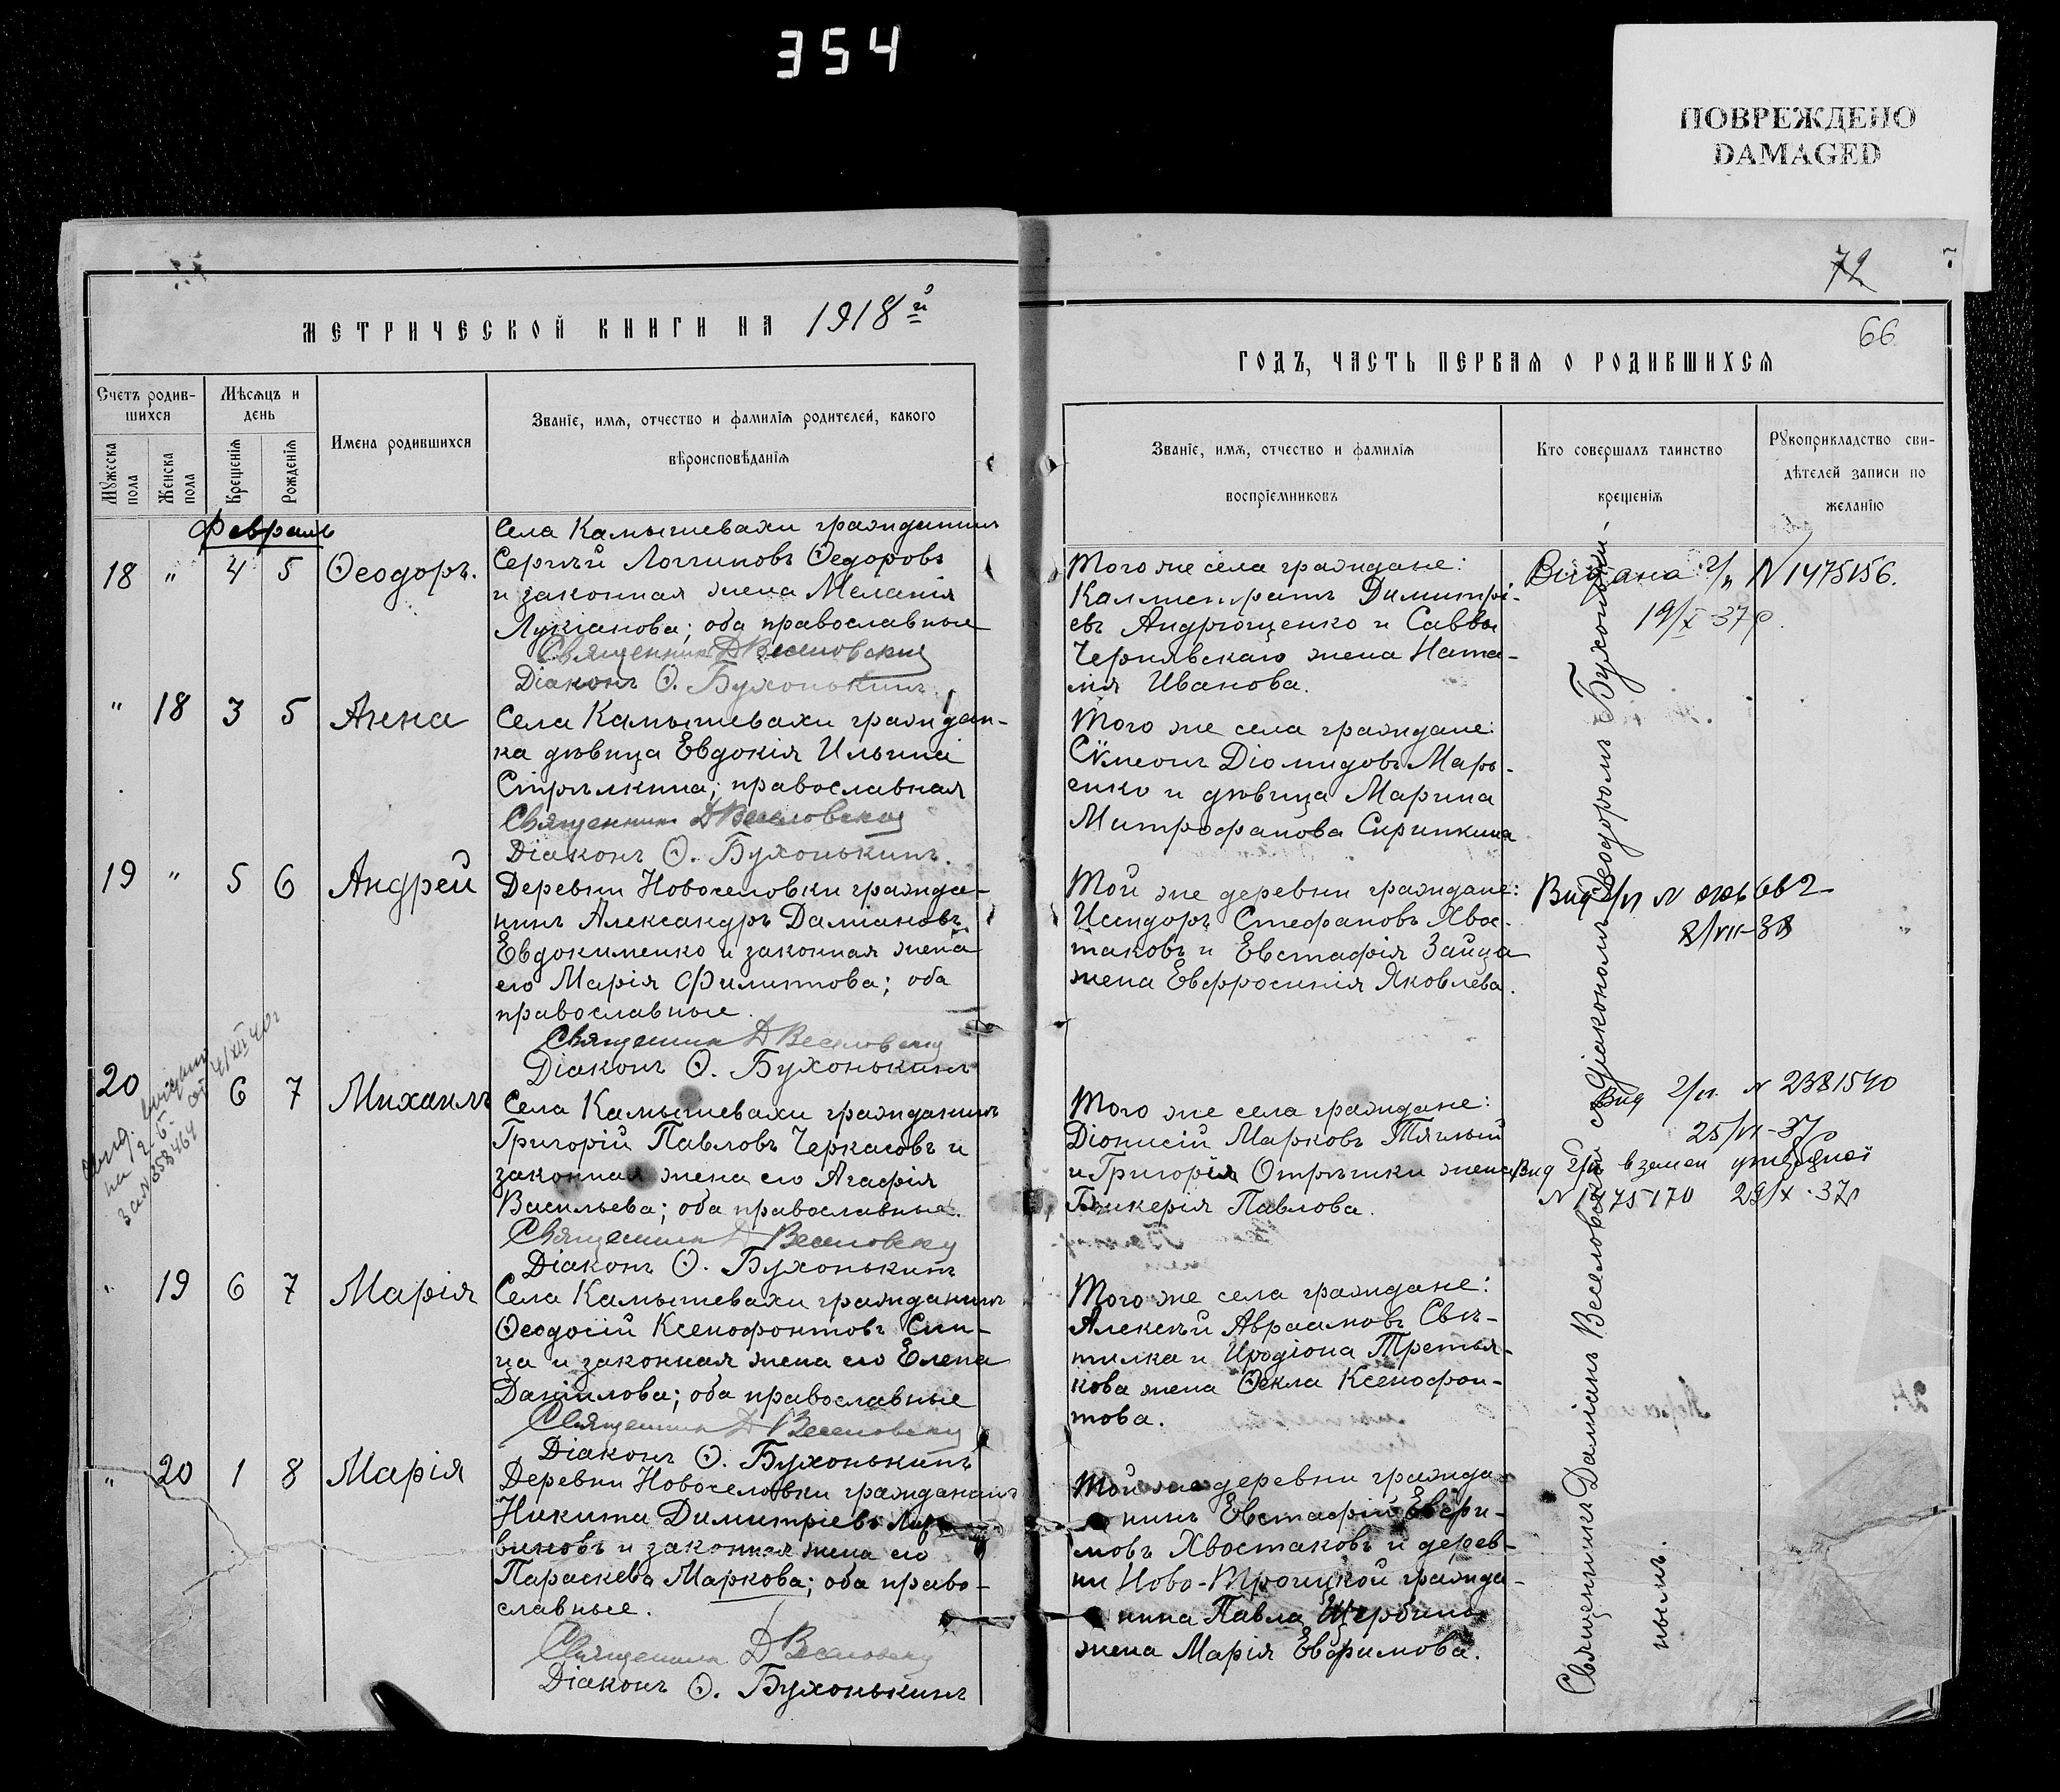 354
ПОВРЕЖДЕНО
DAMAGED
72
66
МЕТРИЧЕСКОЙ КНИГИ НА 1918й
ГОДЪ, ЧАСТЬ ПЕРВАЯ О РОДИВШИХСЯ
Счетъ родив-
шихся
Мужеска пола
Женска пола
Мѣсяцъ и
день
Крещенія
Рожденія
Имена родившихся
Званіе, имя, отчество и фамилія родителей, какого
вѣроисповѣданія
Званіе, имя, отчество и фамилія
воспріемниковъ
Кто совершалъ таинство
крещенія
Рукоприкладство сви-
дѣтелей записи по
желанію
Февраль
18 " 4 5 Ѳеодоръ.
Села Камышевахи гражданинъ
Сергѣй Логгиновъ Ѳедоровъ
и законная жена Меланія
Лукіанова; оба православные
Священникъ Д Веселовскій
Діаконъ Ѳ. Бухонькинъ
Того же села граждане:
Каллистратъ Димитрі-
евъ Андрющенко и Саввы
Чернявскаго жена Ната-
лія Иванова.
Видана 2/п N 1475156.
19/X 37р.
" 18 3 5 Анна
Села Камышевахи граждан-
ка дѣвица Евдокія Ильина
Стрѣлкина; православная
Священникъ Д Веселовскій
Діаконъ Ѳ. Бухонькинъ.
Того же села граждане:
Сѵмеонъ Діомидовъ Марь-
енко и дѣвица Марина
Митрофанова Скрипкина
19 " 5 6 Андрей
Деревни Новоселовки гражда-
нинъ Александръ Даміановъ
Евдокименко и законная жена
его Марія Филиппова; оба
православные.
Священникъ Д Веселовскій
Діаконъ Ѳ. Бухонькинъ
Той же деревни граждане:
Исидоръ Стефановъ Хвос-
таковъ и Евстафія Зайца
жена Евфросинія Яковлева.
Вид 2/п N
2/VII-38
20 6 7 Михаилъ
Села Камышевахи гражданинъ
Григорій Павловъ Черкасовъ и
законная жена его Агафія
Васильева; оба православные.
Священникъ Д Веселовскій
Діаконъ Ѳ. Бухонькинъ
Того же села граждане:
Діонисій Марковъ Тяглый
и Григорія Отрѣшки жена
Гликерія Павлова.
Вид 2/п. N 2381540
25/VI-37р
Вид 2/п взамен
N 1475170 29/X.37р
" 19 6 7 Марія
Села Камышевахи гражданинъ
Ѳеодосій Ксенофонтовъ Син-
ца и законная жена его Елена
Даніилова; оба православные
Священникъ Д Веселовскій
Діаконъ Ѳ. Бухонькинъ
Того же села граждане:
Алексѣй Авраамовъ Свѣ-
тилка и Иродіона Третья-
кова жена Ѳекла Ксенофон-
това.
" 20 1 8 Марія
Деревни Новоселовки гражданинъ
Никита Димитріевъ
виновъ и законная жена его
Параскева Маркова; оба право-
славные.
Священникъ Д Веселовскій
Діаконъ Ѳ. Бухонькинъ
Той же деревни гражда-
нинъ Евстафій Евфи-
мовъ Хвостаковъ и дерев-
ни Ново-Троицкой гражда-
нина Павла Щербины
жена Марія Евфимова.
Священникъ Даміанъ Веселовскій съ діакономъ Ѳеодоромъ Бухонький-
нымъ.